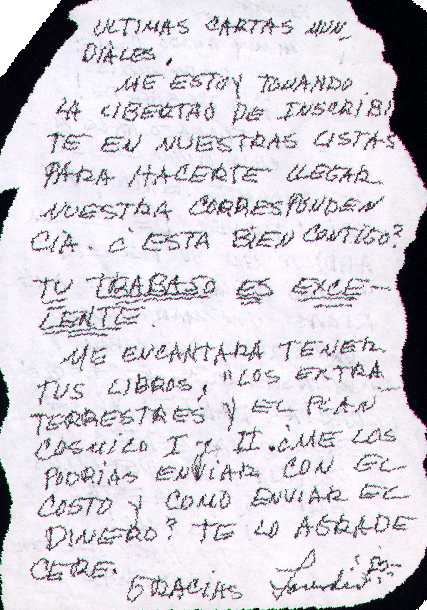 ULTIMAS CARTAS MUN_
DIALES.
ME ESTOY TOMANDO
LA LIBERTAD DE INSCRIBI
TE EN NUESTRAS LISTAS
PARA HACERTE LLEGAR
NUESTRA CORRESPONDEN
CIA. ¿ESTA BIEN CONTIGO?
TU TRABAJO ES EXCE-
LENTE.
ME ENCANTARA TENER
TUS LIBROS, "LOS EXTRA_
TERRESTRES Y EL PLAN
COSMICO I y II. ¿ME LOS
PODRIAS ENVIAR CON EL
COSTO Y COMO ENVIAR EL
DINERO? TE LO AGRADE
CERE.
GRACIAS